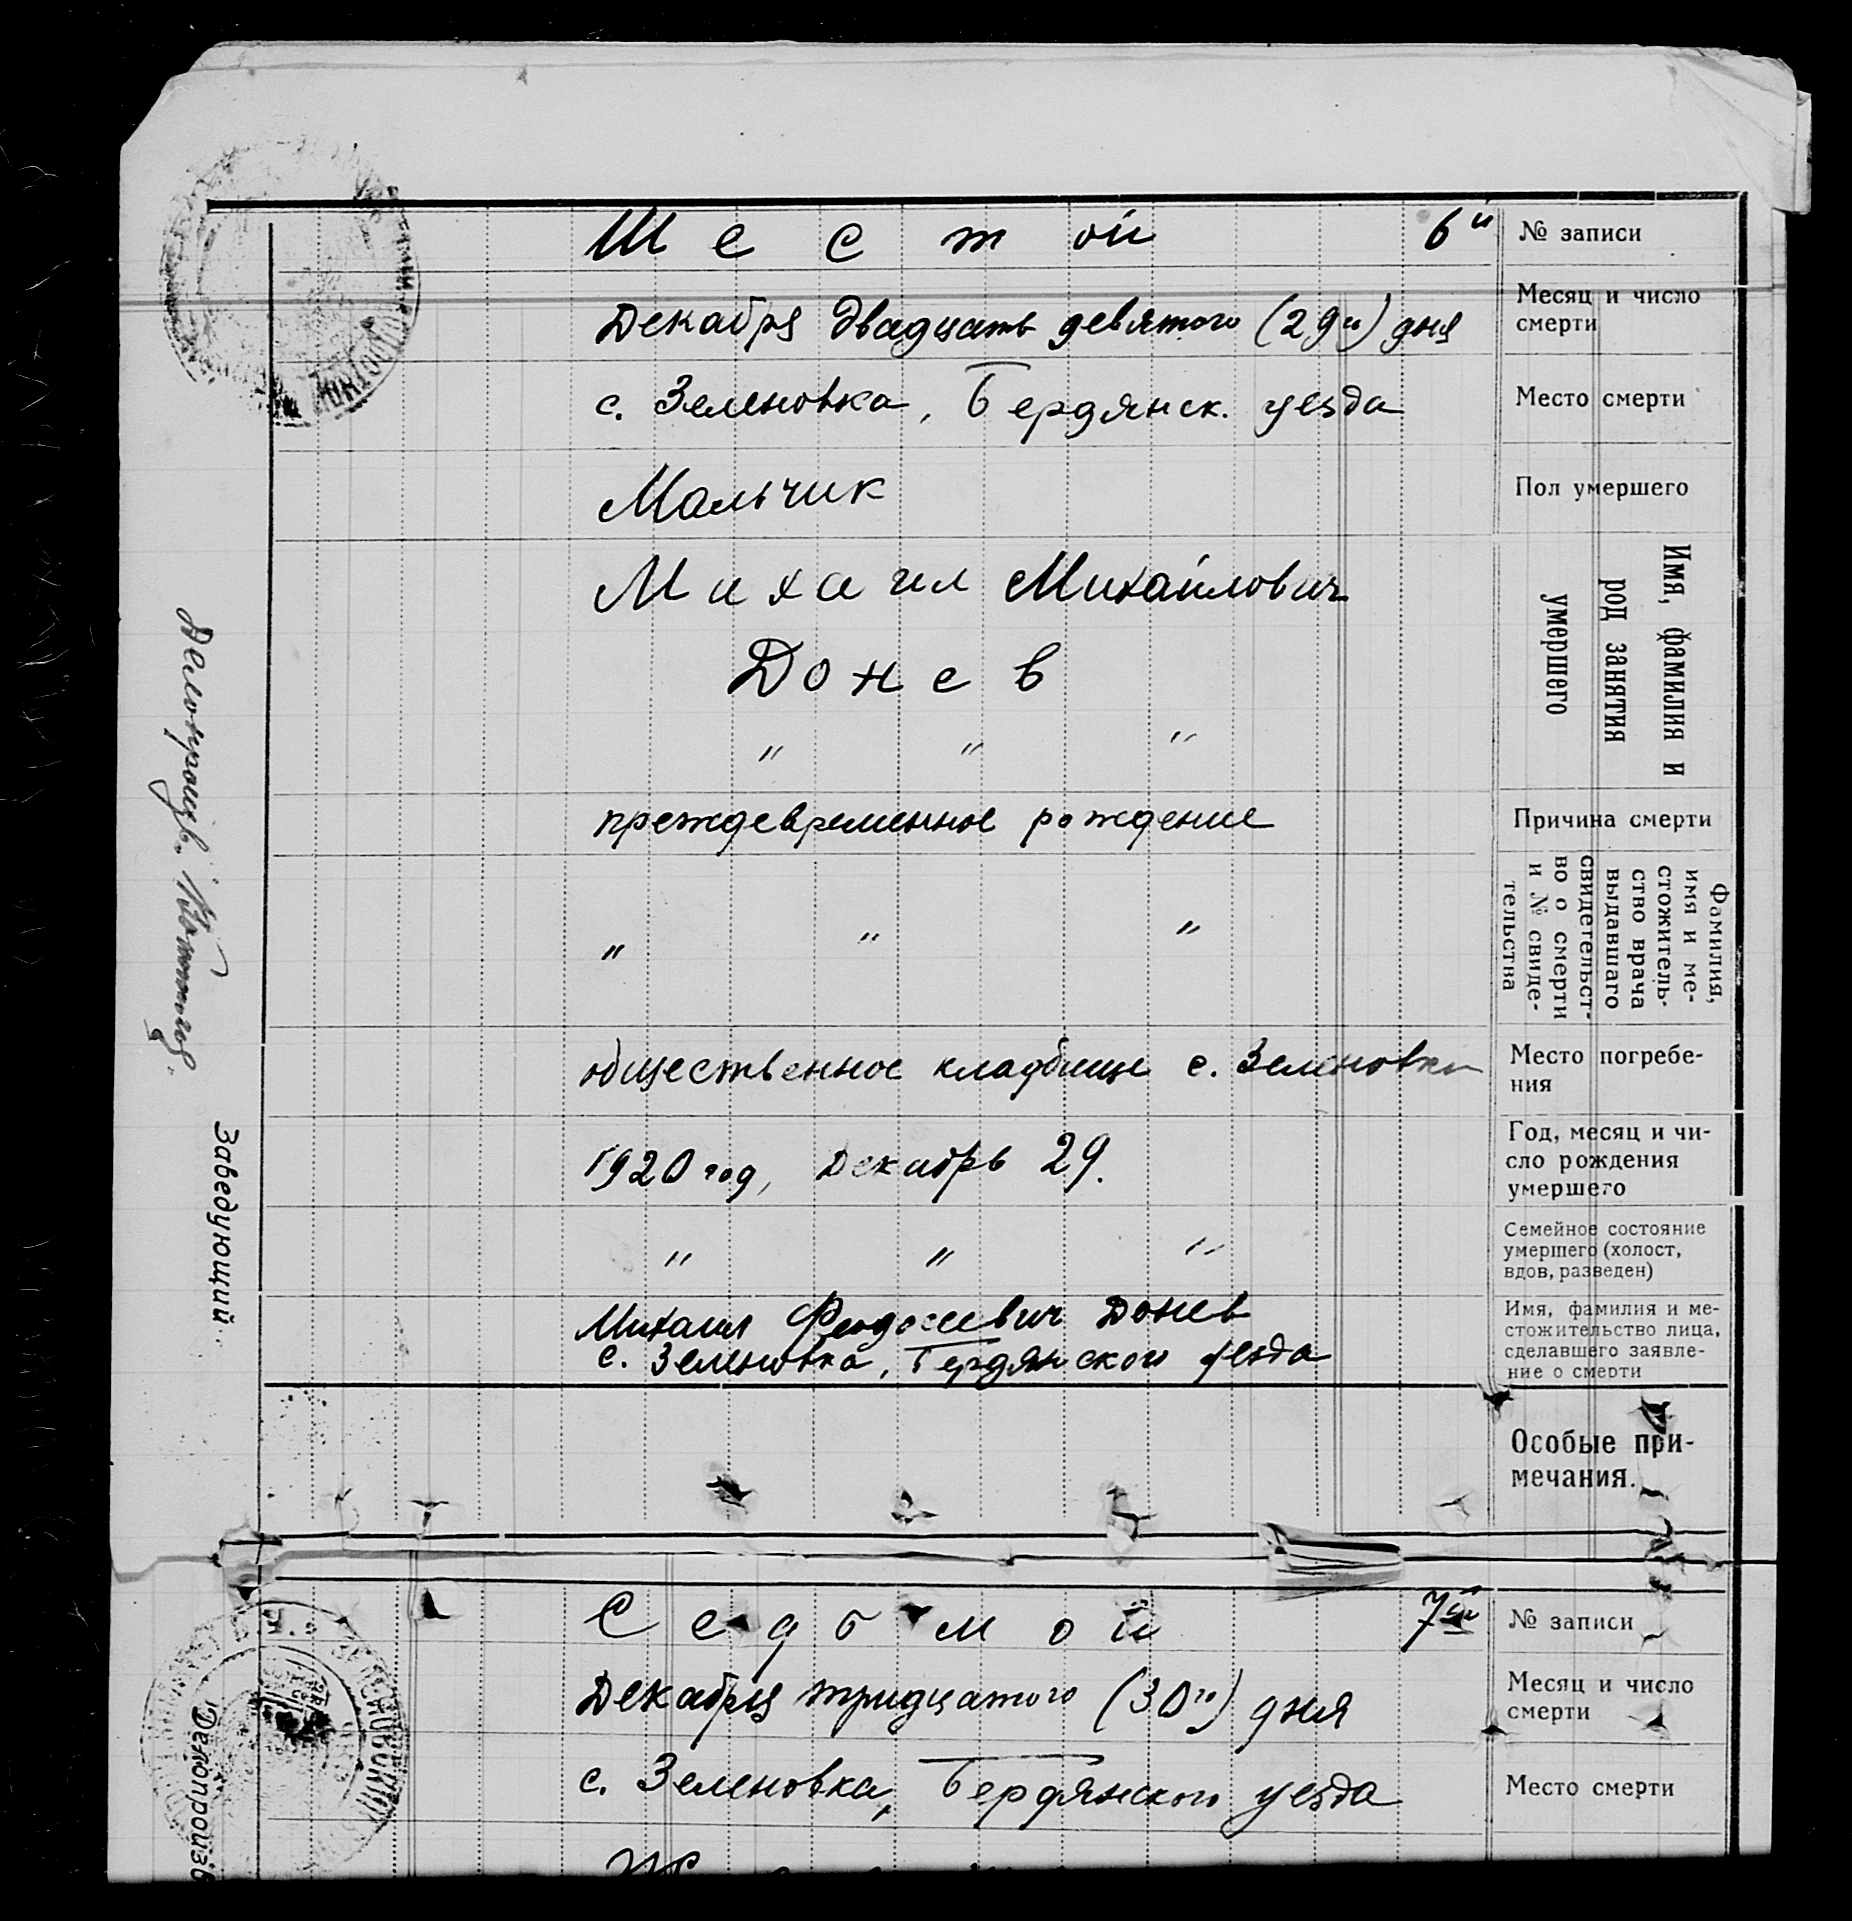 № записи
Шестой 6й
Месяц и число
смерти
Декабря двадцать девятого (29го) дня
Место смерти
с. Зеленовка, Бердянск. уезда
Пол умершего
Мальчик
Имя, фамилия и
род занятия
умершего
Михаил Михайлович
Донев
" " "
Причина смерти
преждевременное рождение
Фамилия,
имя и ме-
стожитель-
ство врача
выдавшаго
свидетельст-
во о смерти
и № свиде-
тельства
" " "
Место погребе-
ния
общественное кладбище с. Зеленовки
Год, месяц и чи-
сло рождения
умершего
1920 год, Декабрь 29.
Семейное состояние
умершего (холост,
вдов, разведен)
" " "
Имя, фамилия и ме-
стожительство лица,
сделавшего заявле-
ние о смерти
Михаил Феодосиевич Донев
с. Зеленовка, Бердянского уезда
Особые при-
мечания.
Заведующий
Делопроизв.
№ записи
Седьмой 7й
Месяц и число
смерти
Декабря тридцатого (30го) дня
Место смерти
с. Зеленовка, Бердянского уезда
Делопроизв